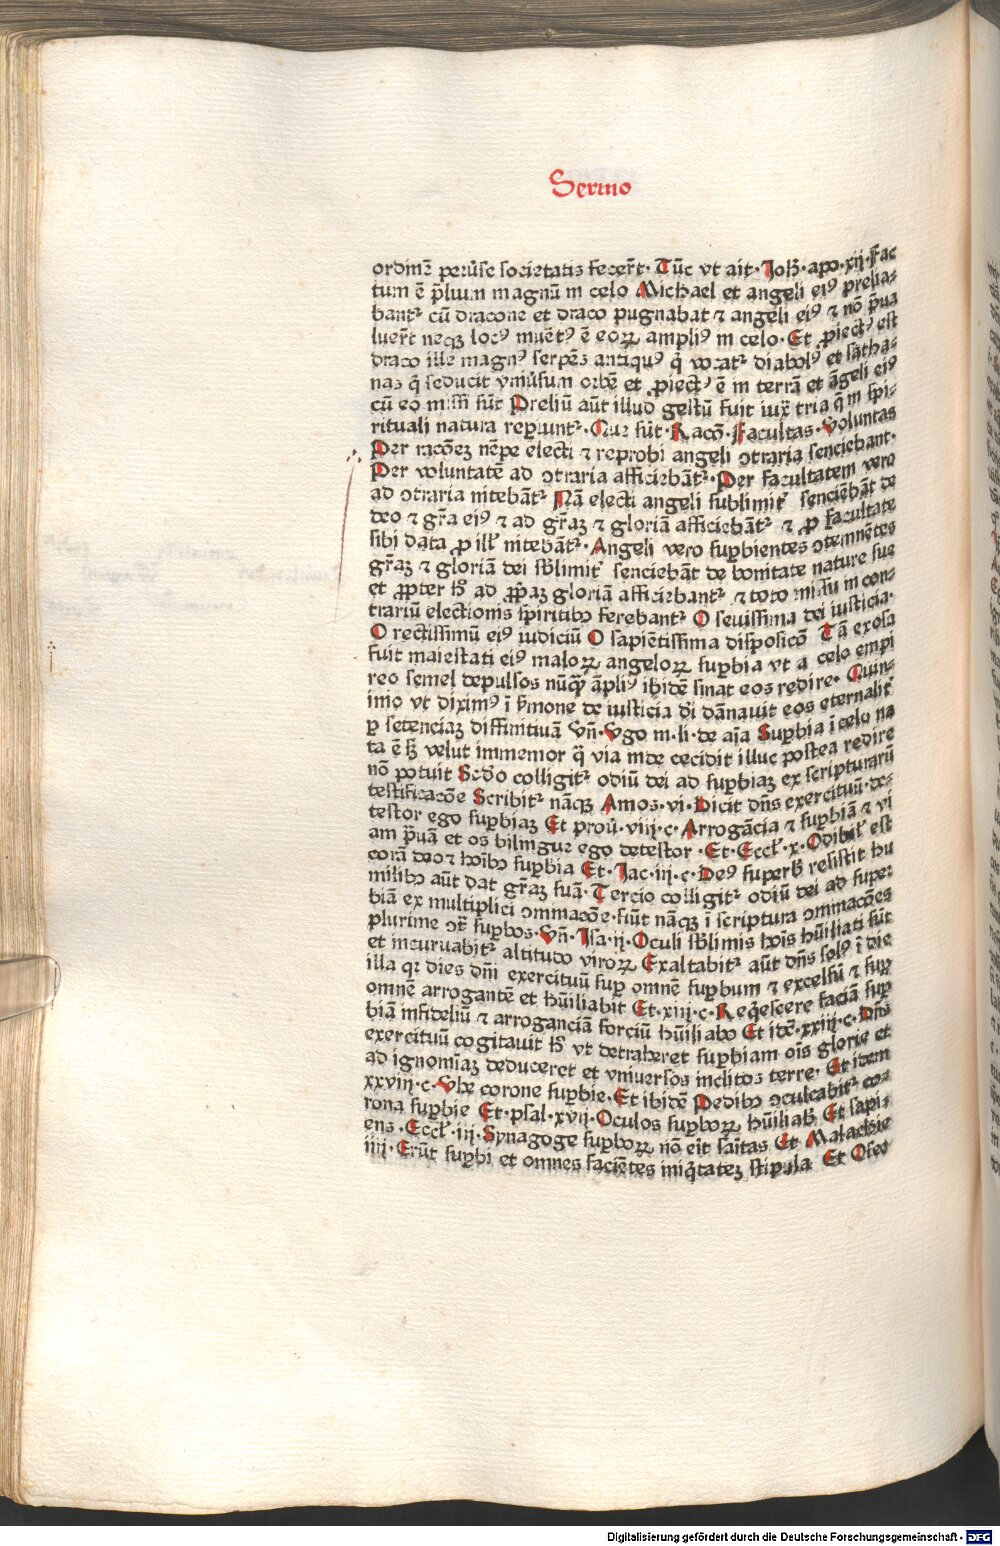 Sermo
ordinē peruſe societatis fecer̄t· Tūc vt ait· Joh̄· apo·xij·Fac
tum ē p̄lium magnū in celo Michael et angeli eiꝰ prelia-
bantꝛ cū dracone et draco pugnabat ⁊ angeli eiꝰ ⁊ nō p̄ua
luer̄t neqꝫ locꝰ inuētꝰ ē eoꝝ ampliꝰ in celo· Et ꝓiectꝰ est
draco ille magnꝰ serpēs antiquꝰ q̄ vocatꝛ diabolꝰ et satha-
nas q̄ seducit vniūsum orbē et ꝓiectꝰ ē in terrā et āgeli eiꝰ
cū eo missi sūt Preliū aūt illud gestū fuit iuxͣ tria q̄ in sp̄i-
rituali natura reꝑiuntꝛ· Que sūt· Racō· Facultas· Voluntas
Per racōeꝫ nēpe electi ⁊ reprobi angeli ↄtraria senciebant·
Per voluntatē ad ↄtraria afficiebātꝛ· Per facultatem vero
ad ↄtraria nitebātꝛ Nā electi angeli sublimit᷑ senciebāt de
deo ⁊ gr̄a eiꝰ ⁊ ad gr̄aꝫ ⁊ gloriā afficiebātꝛ ⁊ ꝓ facultate
sibi data ꝓ ill̄ nitebātꝛ· Angeli vero suꝑbientes ↄtemnētes
gr̄aꝫ ⁊ gloriā dei sb̄limit᷑ senciebāt de bonitate nature sue
et ꝓpter h̄ ad ꝓp̄aꝫ gloriā afficiebantꝛ ⁊ toto nisu in con-
trariū electionis sp̄iritibꝰ ferebantꝛ O seuissima dei iusticia·
O rectissimū eiꝰ iudiciū O sapiētissima disposicō Tā exosa
fuit maiestati eiꝰ maloꝝ angeloꝝ suꝑbia vt a celo empi
reo semel depulsos nūqͣ āpliꝰ ibidē sinat eos redire· Quin-
imo vt diximꝰ ī ẜmone de iusticia dī dānauit eos eternalit᷑
ꝑ setenciaꝫ diffinitiuā Vn̄· Vgo in·li·de aīa Suꝑbia ī celo na
ta ē sꝫ velut immemor q̄ via inde cecidit illuc postea redire
nō potuit Scd̄o colligitꝛ odiū dei ad suꝑbiaꝫ ex scripturarū
testificacōe Scribitꝛ nāqꝫ Amos·vi· Dicit dn̄s exercituū· de-
testor ego suꝑbiaꝫ Et prou̇·viij·c· Arrogācia ⁊ suꝑbiā ⁊ vi
am p̄uā et os bilingue ego detestor· Et· Eccl̄·x· Odibil᷑ est
corā deo ⁊ hoībꝫ suꝑbia Et· Jac·iij·c· Deꝰ suꝑb᷑ resistit hu
milibꝫ aūt dat gr̄aꝫ suā· Tercio colligitꝛ odiū dei ad super
biā ex multiplici ↄmmacōe· siūt nāqꝫ ī scriptura ↄmmacōes
plurime ↄͭ suꝑbos· Vn̄· Jsa·ij· Oculi sb̄limis hoīs hūiliati sūt
et incuruabitꝛ altitudo viroꝝ Exaltabitꝛ aūt dn̄s solꝰ ī die
illa qꝛ dies dn̄i exercituū suꝑ omnē suꝑbum ⁊ excelsū ⁊ suꝑ
omnē arrogantē et hūiliabit Et·xiij·c· Reqͥescere faciā suꝑ
biā infideliū ⁊ arroganciā forciū hūiliabo Et idē·xxiij·c· Dn̄s
exercituū cogitauit h̄ vt detraheret suꝑbiam oīs glorie et
ad ignomīaꝫ deduceret et vniuersos inclitos terre· Et idem
xxviij·c· Vhe corone suꝑbie· Et ibidē Pedibꝫ ↄculcabitꝛ co-
rona suꝑbie Et· psal·xvij· Oculos suꝑboꝝ hūiliab᷑ Et sapi-
ens· Eccl̄·iij· Synagoge suꝑboꝝ nō eit saītas Et Malachie
iiij· Erūt suꝑbi et omnes faciētes iniqͥtateꝫ stipula Et Osee
Digitalisierung gefördert durch die Deutsche Forschungsgemeinschaft - DFG